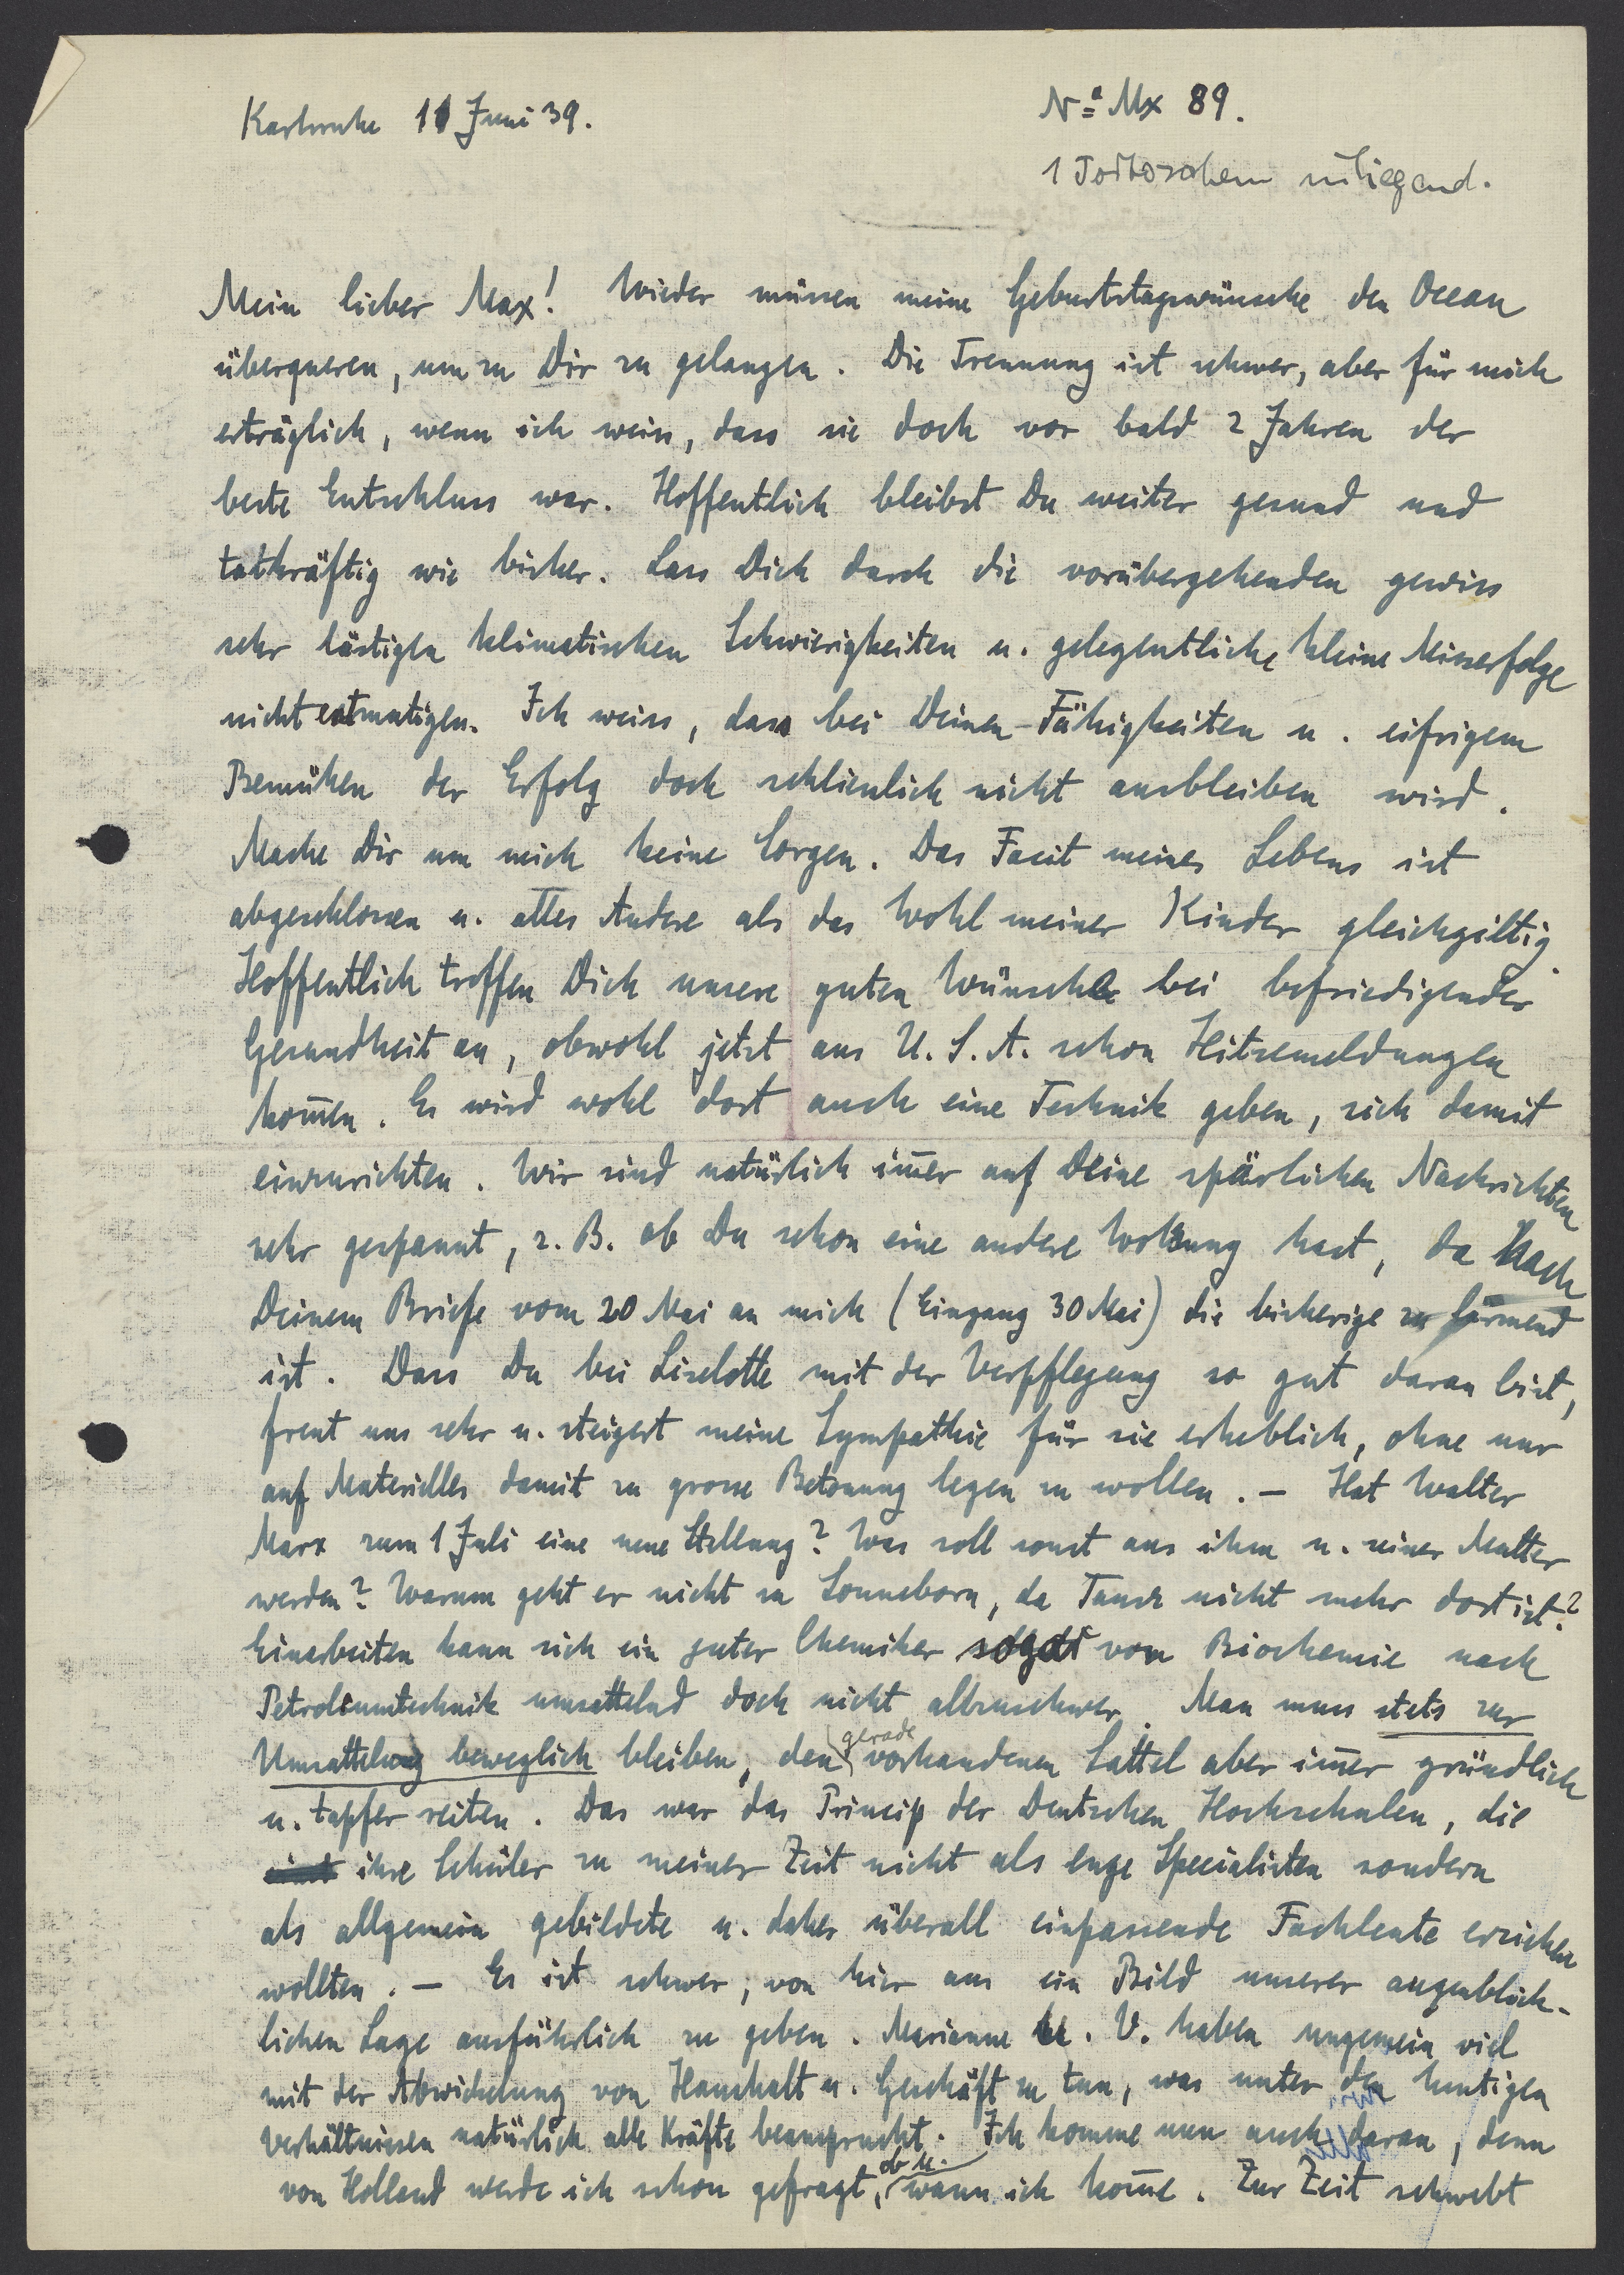 Karlsruhe 11 Juni 39.
No Mx 89.
1 Postschein inliegend.
Mein lieber Max! Wieder müssen meine Geburtstagswünsche den Ocean
überqueren, um zu Dir zu gelangen. Die Trennung ist schwer, aber für mich
erträglich, wenn ich weiss, dass sie doch vor bald 2 Jahren der
beste Entschluss war. Hoffentlich bleibst Du weiter gesund und
tatkräftig wie bisher. Lass Dich durch die vorübergehenden gewiss
sehr lästigen klimatischen Schwierigkeiten u. gelegentliche kleine Misserfolge
nicht entmutigen. Ich weiss, dass bei Deinen Fähigkeiten u. eifrigem
Bemühen der Erfolg doch schliesslich nicht ausbleiben wird.
Mache Dir um mich keine Sorgen. Das Facit meines Lebens ist
abgeschlossen u. alles Andere als das Wohl meiner Kinder gleichgiltig.
Hoffentlich treffen Dich unsere guten Wünsche bei befriedigender
Gesundheit an, obwohl jetzt aus U.S.A. schon Hitzemeldungen
kom̄en. Es wird wohl dort auch eine Technik geben, sich damit
einzurichten. Wir sind natürlich im̄er auf Deine spärlichen Nachrichten
sehr gespannt, z.B. ob Du schon eine andere Wohnung hast, da nach
Deinem Briefe vom 20 Mai an mich (Eingang 30 Mai) die bisherige zu lärmend
ist. Dass Du bei Liselotte mit der Verpflegung so gut daran bist,
freut uns sehr u. steigert meine Sympathie für sie erheblich, ohne nur
auf Materielles damit zu grosse Betonung legen zu wollen. – Hat Walter
Marx zum 1 Juli eine neue Stellung? Was soll sonst aus ihm u. seiner Mutter
werden? Warum geht er nicht zu Sonneborn, da Tausz nicht mehr dort ist?
Einarbeiten kann sich ein guter Chemiker sogar von Biochemie nach
Petroleumtechnik umsattelnd doch nicht allzuschwer. Man muss stets zur
Umsattelung beweglich bleiben, den gerade vorhandenen Sattel aber im̄er gründlich
u. tapfer reiten. Das war das Princip der Deutschen Hochschulen, die
ihre Schüler zu meiner Zeit nicht als enge Specialisten sondern
als allgemein gebildete u. daher überall einpassende Fachleute erziehen
wollten. – Es ist schwer, von hier aus ein Bild unserer augenblick-
lichen Lage ausführlich zu geben. Marianne u. V. haben ungemein viel
mit der Abwickelung von Haushalt u. Geschäft zu tun, was unter den heutigen
Verhältnissen natürlich alle Kräfte beansprucht. Ich komme nun auch daran, denn
von Holland werde ich schon gefragt, ob u. wann ich kom̄e. Zur Zeit schwebt